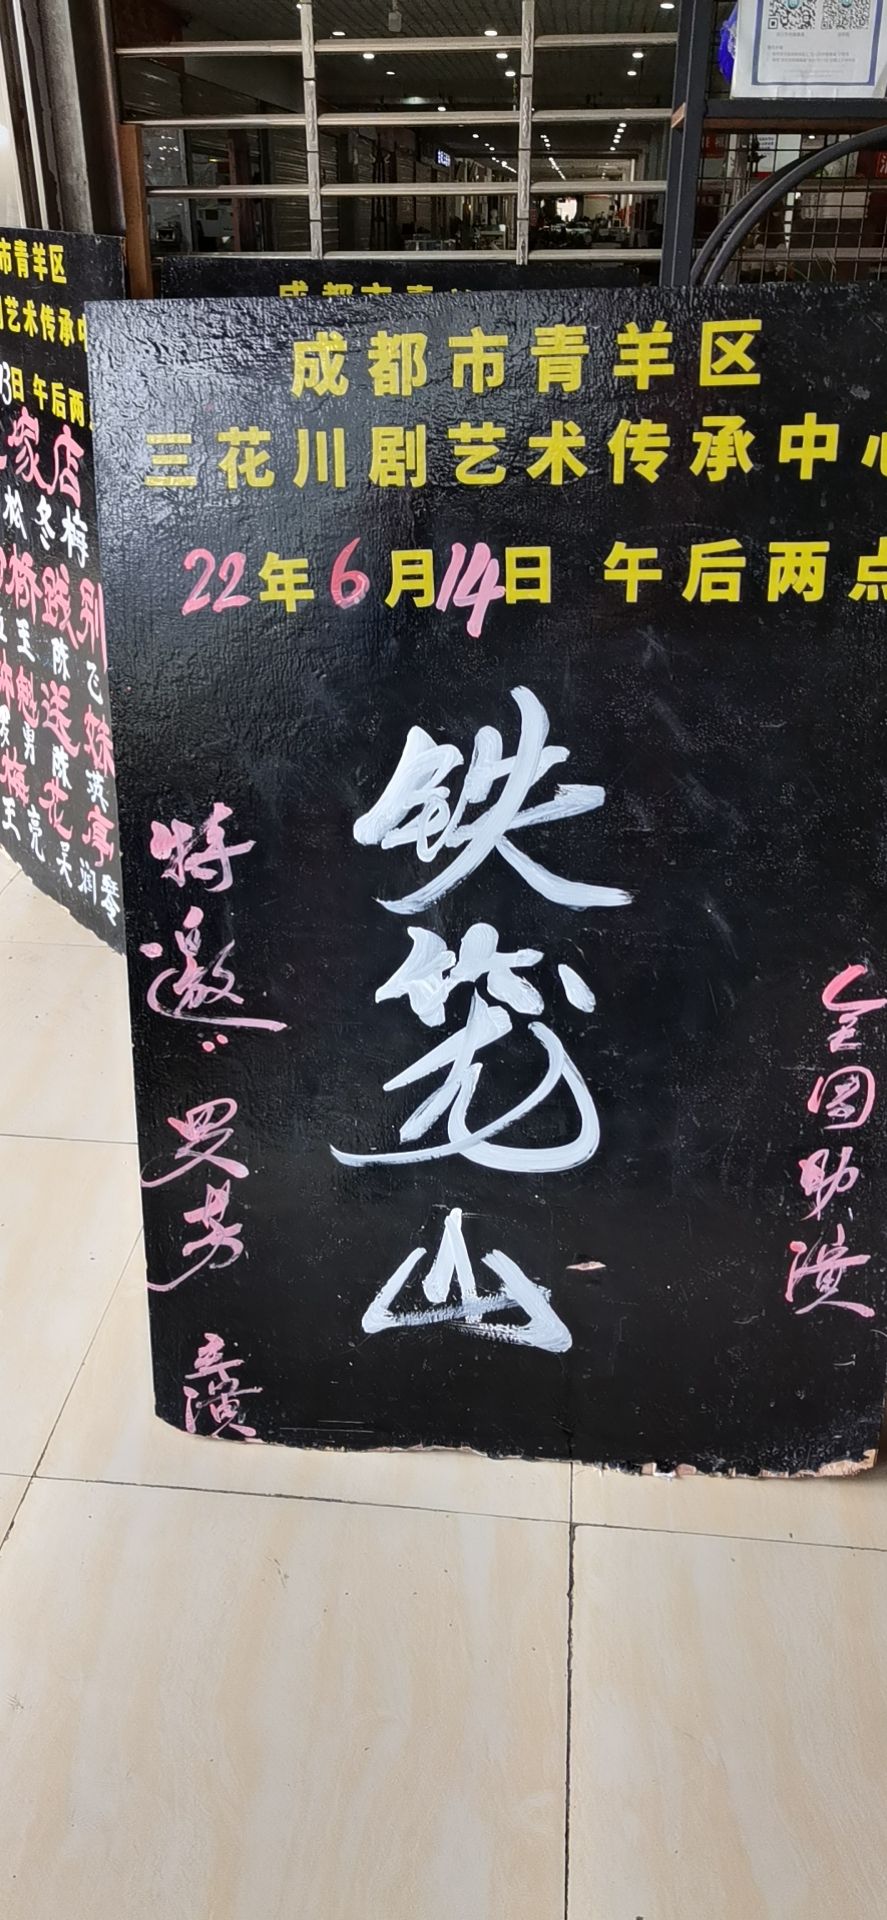 市青羊区
艺术传承中
03日 午后两
家店
松冬梅
桥 践 别
王 陈 飞
魁 送 妹
男 陈 英
梅 花 亭
王亮 吴润琴
成都市青
成都市青羊区
三花川剧艺术传承中心
22年6月14日 午后两点
铁笼山
特邀: 罗芳 主演
全团助演